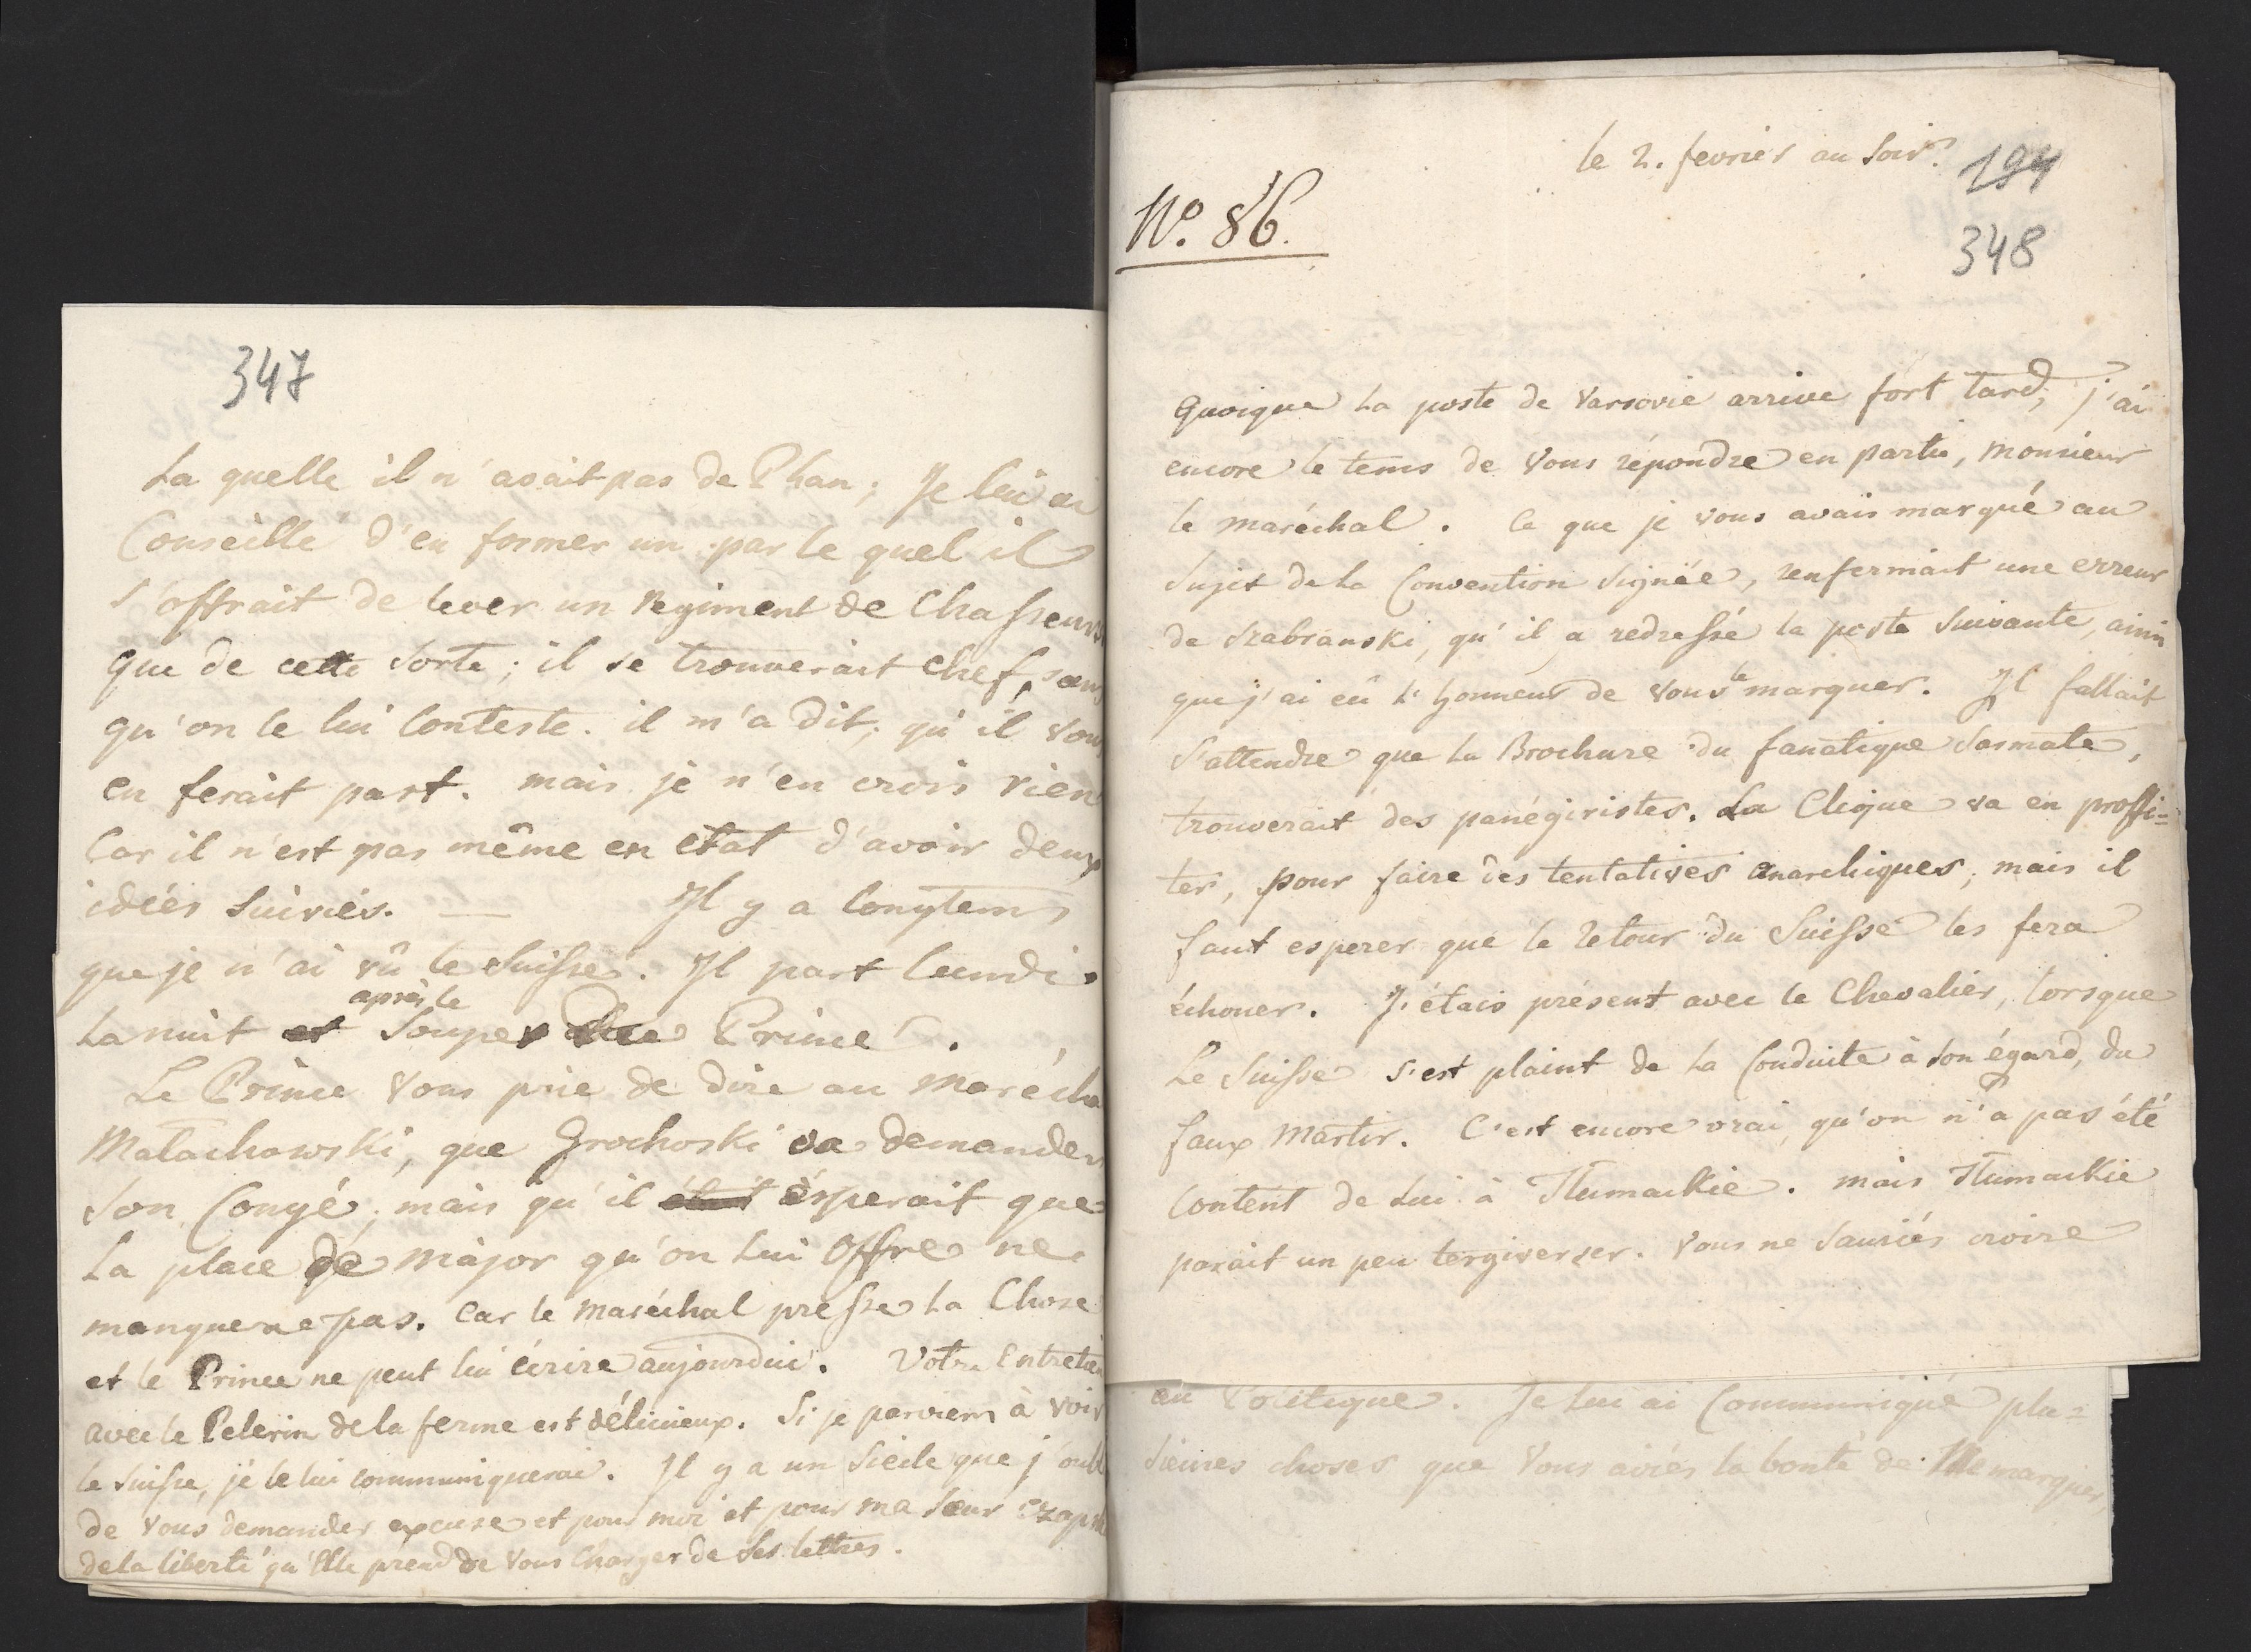 347
La quelle il n'avait pas de Plan; Je lui ai
Conseillé d'en former un par le quel il
s'offrait de lever un Regiment de Chasseurs
que de cette sorte; il se trouverait chef, sans
qu'on le lui Conteste. il m'a dit, qu'il vous
en ferait part. mais je n'en crois rien
Car il n'est pas même en etat d'avoir deux
idéés suiviés. — Il y a longtems
que je n'ai vû le Suisse. Il part lundi.
après le
La nuit et souper Prince.
Le Prince Vous prie de dire au Marécha
Małachowski, que Grochoski va demander
Son Congé; mais qu'il était ésperait que
La place de Major qu'on lui Offre ne
manquera pas. Car le Maréchal presse la Chose
et le Prince ne peut lui écrire aujourdui. Votre Entretie
avec le Pelerin de la ferme est délicieux. Si je parviens à voir
le Suisse, je le lui communiquerai. Il y a un Siécle que j'oubl
de Vous demander excuse et pour moi et pour ma Sœur Czaps
de la liberté qu'Elle prend de Vous Charger de Ses lettres.
le 2. fevrier au Soir.
194
348
No. 86.
Quoique La poste de Varsovie arrive fort tard, j'ai
encore le tems de Vous répondre en partie, Monsieur
le Maréchal. Ce que je Vous avais marqué au
Sujet de la Convention Signéé, renfermait une erreur
de Szabranski, qu'il a redressé la poste Suivante, ainsi
le
que j'ai eû l'honneur de Vous marquer. Il fallait
S'attendre que la Brochure du fanatique Sarmate,
trouverait des panégiristes. La Clique va en proffi=
ter, pour faire des tentatives anarchiques; mais il
faut esperer que le retour du Suisse les fera
échouer. J'étais présent avec le Chevalier, lorsque
Le Suisse s'est plaint de la Conduite à Son égard, du
faux Martir. C'est encore vrai, qu'on n'a pas été
Content de Lui à Tłumackie. mais Tłumackie
parait un peu tergiverser. Vous ne Sauriés croire
en Politique. Je lui ai Communiqué plu=
sieures choses que Vous aviés la bonté de Me marquer,